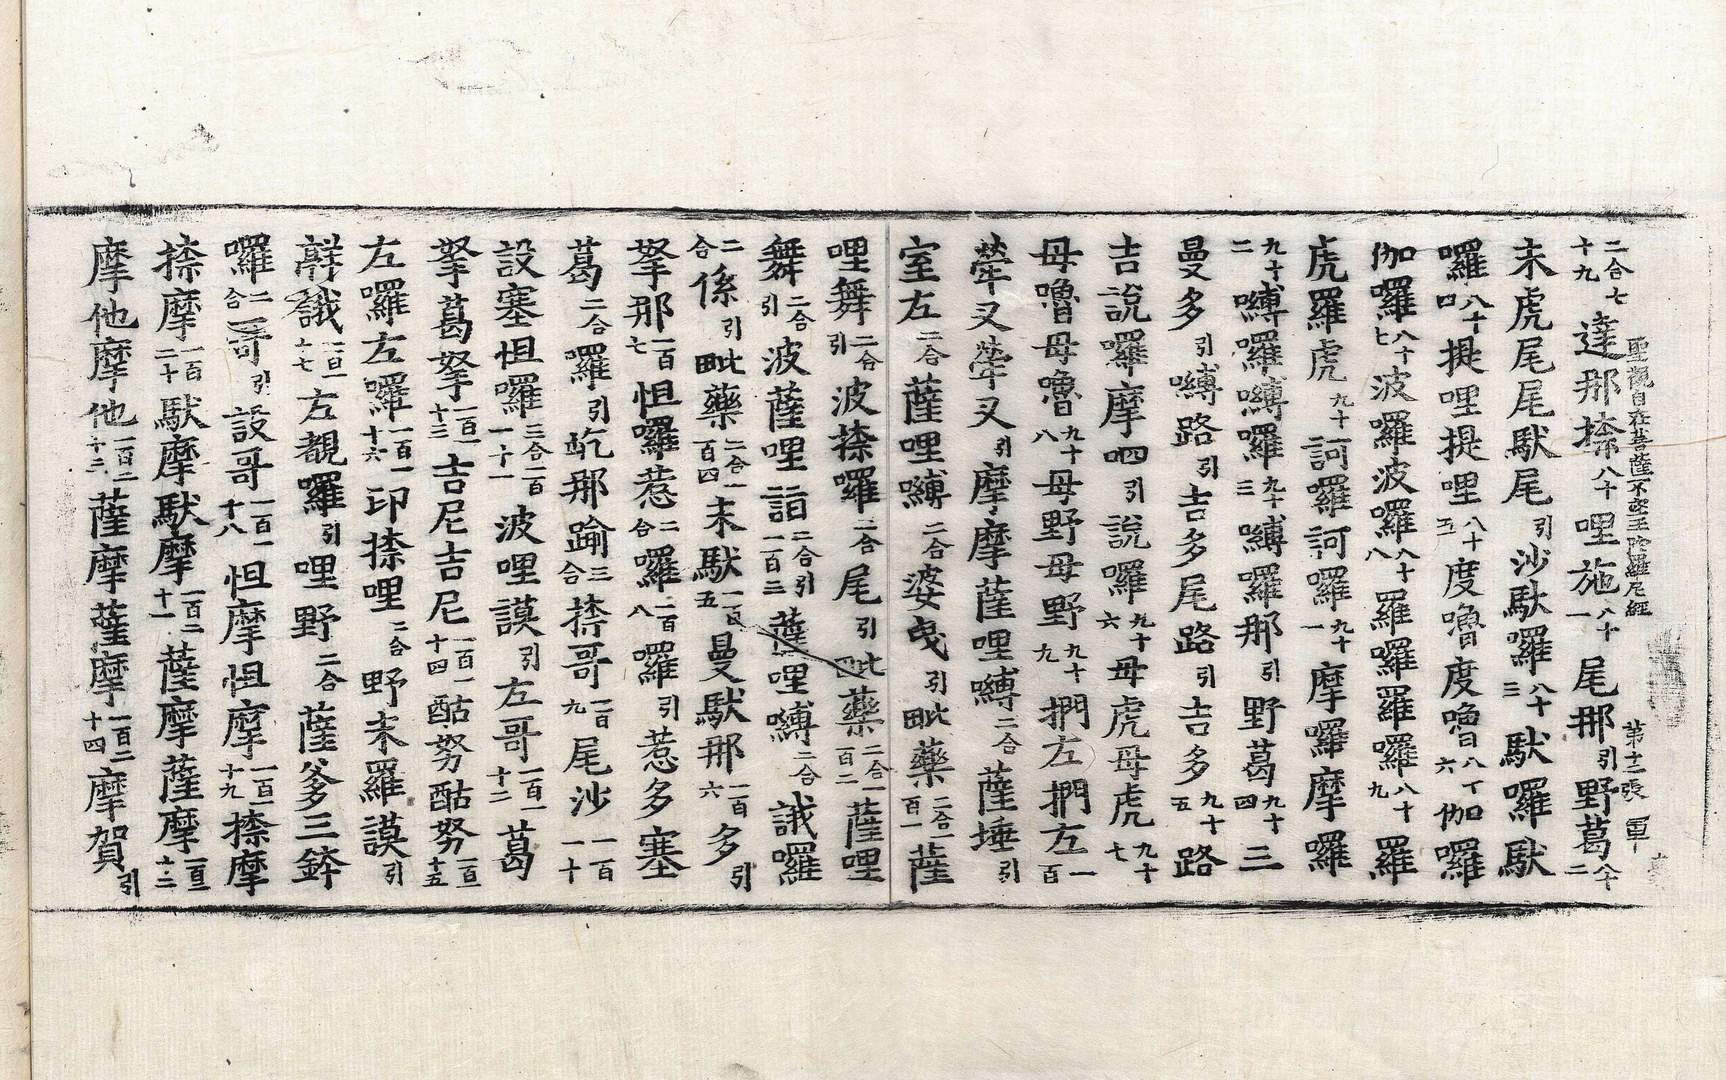 聖觀自在菩薩不空王陁羅尼經 第十二張 軍
二合七十九達那捺八十哩施八十一尾那引野葛八十二
末虎尾尾馱尾引沙馱囉八十三馱囉馱
囉八十四提哩提哩八十五度嚕度嚕八十六伽囉
伽囉八十七波囉波囉八十八羅羅羅囉八十九羅
虎羅虎九十訶囉訶囉九十一摩囉摩囉
九十二嚩囉嚩囉九十三嚩囉那引野葛九十四三
曼多引嚩路引吉多尾路引吉多九十五路
吉說囉摩呬引說囉九十六母虎母虎九十七
母嚕母嚕九十八母野母野九十九捫左捫左一百
犖叉犖叉引摩摩薩哩嚩二合薩埵引
室左二合薩哩嚩二合婆曳引毗藥二合一百一薩
哩舞二合引波捺囉二合尾引毗藥二合一百二薩哩
舞二合引波薩哩誐二合引一百三薩哩嚩二合誐囉
二合係引毗藥二合一百四末馱一百五曼馱那一百六多引
拏那一百七怛囉惹二合囉一百八囉引惹多塞
葛二合囉引訖那踰三合捺哥一百九尾沙一百一十
設塞怛囉三合一百一十一波哩謨引左哥一百一十二葛
拏葛拏一百一十三吉尼吉尼一百一十四酤努酤努一百一十五
左囉左囉一百一十六印捺哩二合野末羅謨引
誐一百一十七左覩囉引哩野二合薩爹三鉢
囉二合哥引設哥一百一十八怛摩怛摩一百一十九捺摩
捺摩一百二十馱摩馱摩一百二十一薩摩薩摩一百二十二
摩他摩他一百二十三薩摩薩摩一百二十四摩賀引